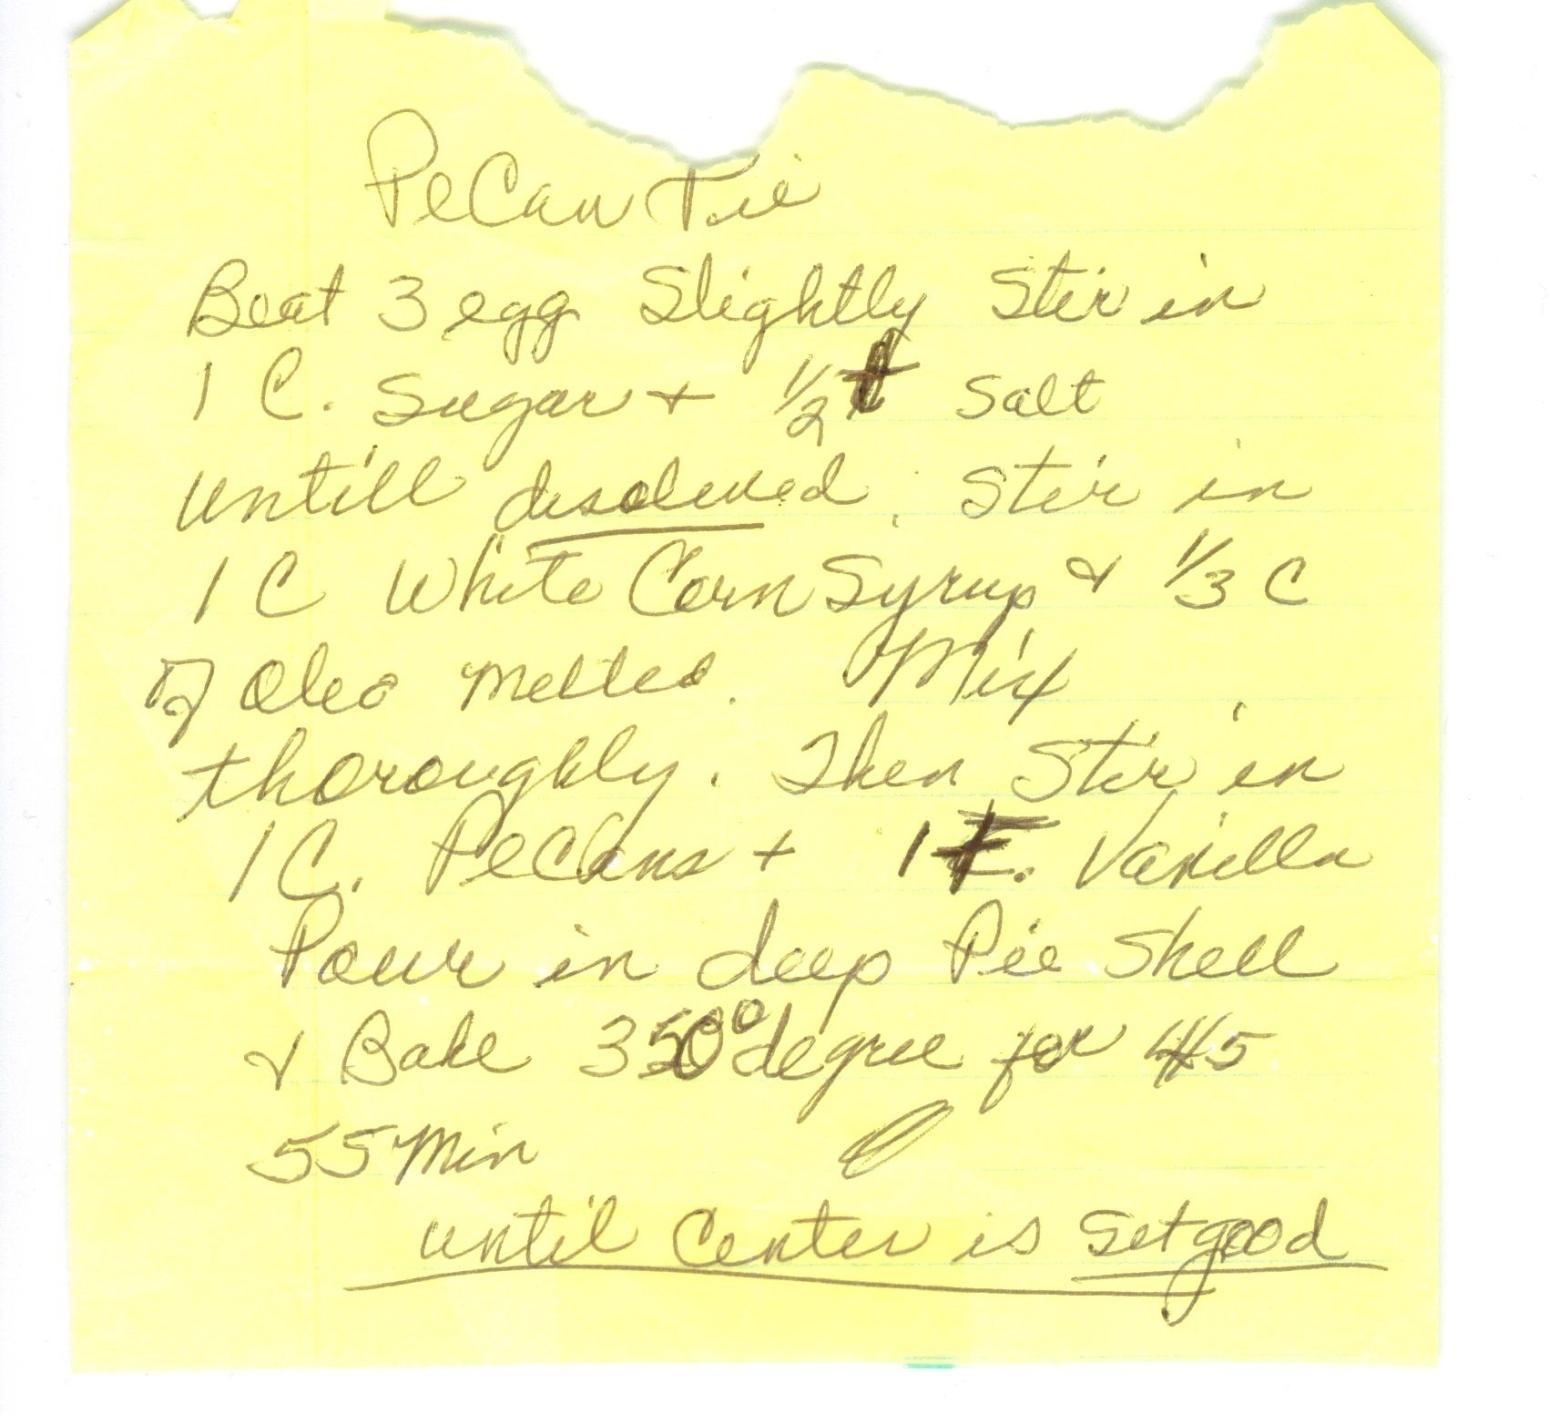 Pecan Pie
Beat 3 egg Slightly Stir in
1 C. Sugar + 1/2 t Salt
untill disolved. Stir in
1 C White Corn Syrup & 1/3 C
of Oleo melted. Mix
thoroughly. Then Stir in
1 C. Pecans + 1 t. Vanilla
Pour in deep Pie Shell
& Bake 350° degree for 45
55 Min
until Center is set good